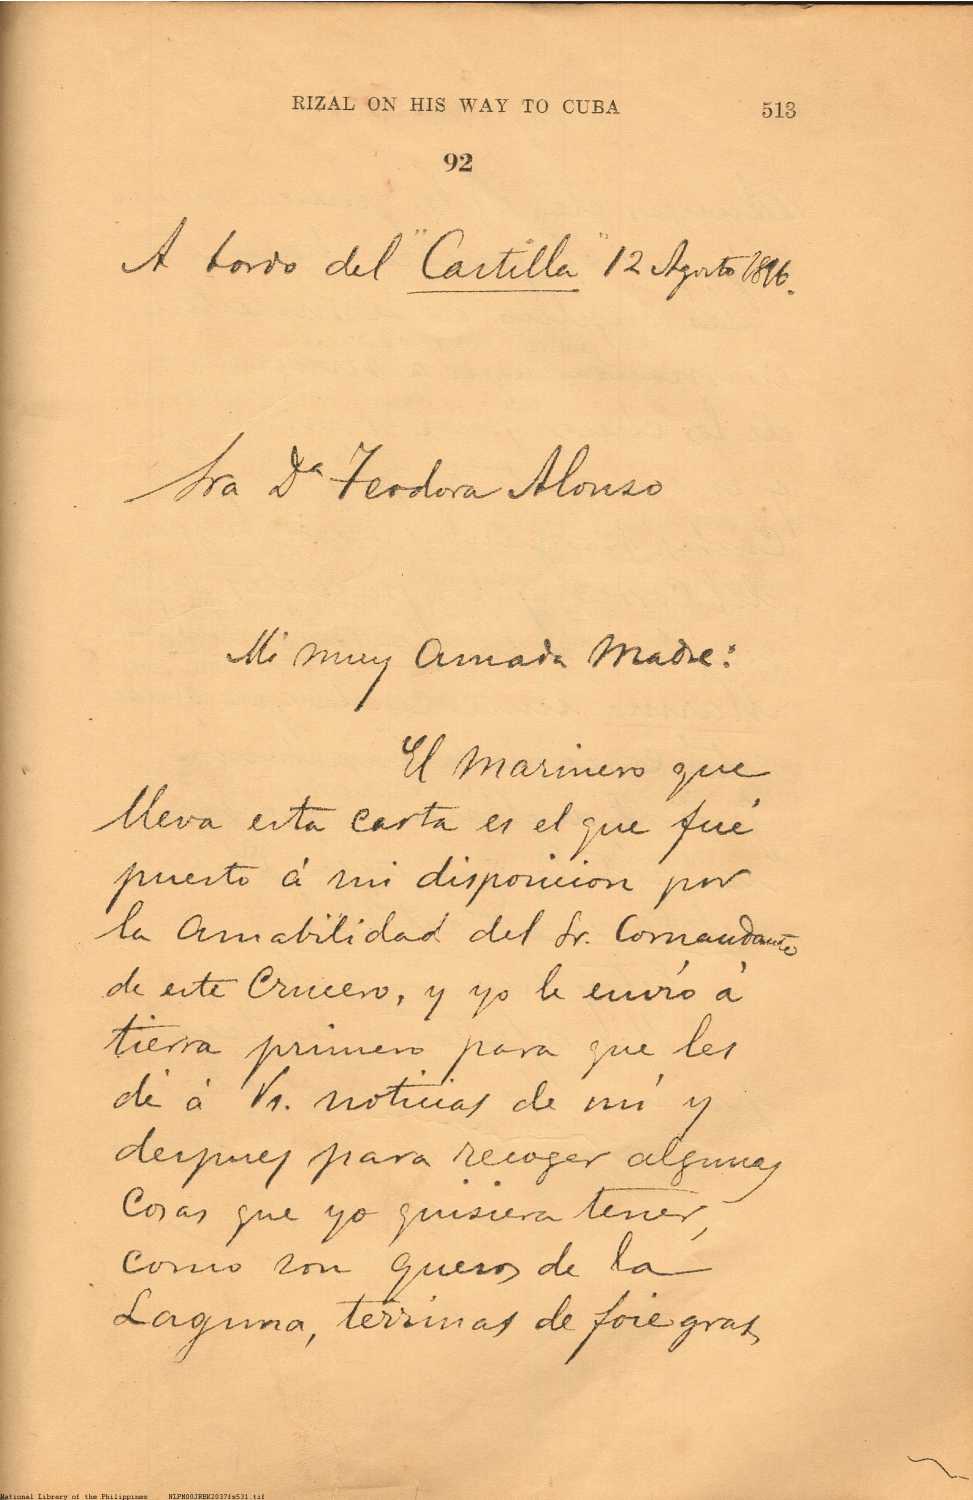 RIZAL ON HIS WAY TO CUBA 513
92
A bordo del "Castilla" 12 Agosto 1896.
Sra Dª Teodora Alonso
Mi muy amada Madre:
El marinero que
lleva esta carta es el que fué
puesto á mi disposicion por
la amabilidad del Sr. Comandante
de este Crucero, y yo le envío á
tierra primero para que les
dé á Vs. noticias de mí y
despues para recoger algunas
cosas que yo quisiera tener,
como son quesos de la
Laguna, terrinas de foie gras,
National Library of the Philippines NLPN00JRBK2037fs531.tif